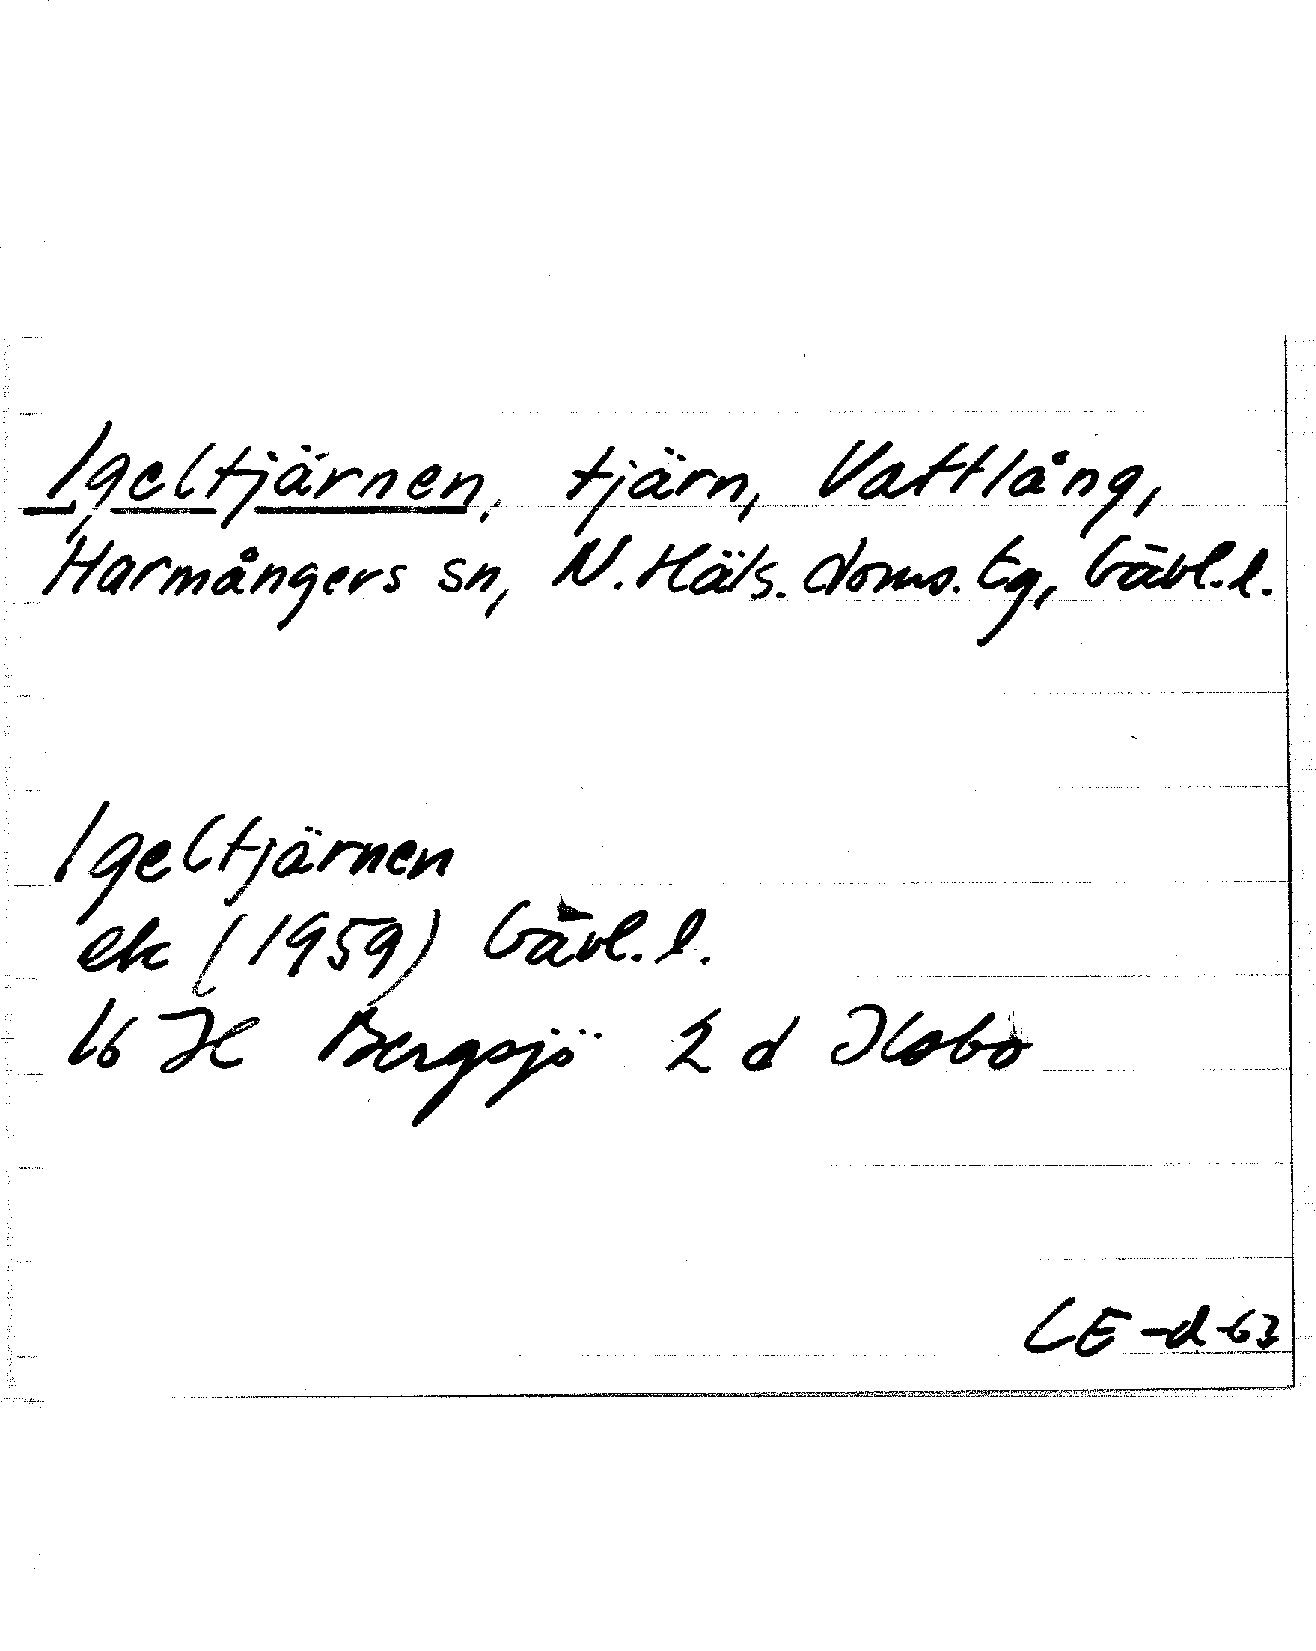 Igeltjärnen, tjärn, Vattlång,
Harmångers sn, N. Häls. doms. tg, Gävl. l.
Igeltjärnen
ek (1959) Gävl. l.
16 H Bergsjö 2 d Ilsbo
CE-d-63